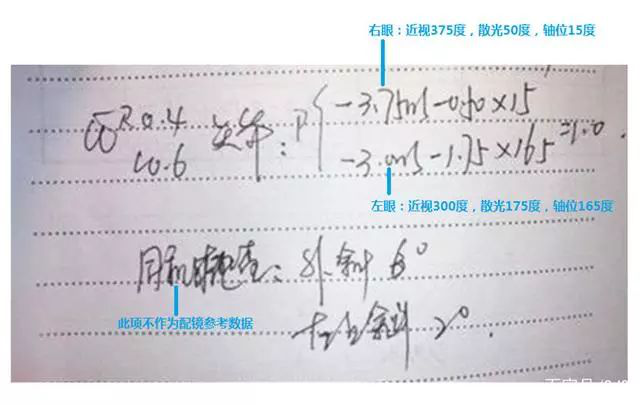 右眼：近视375度，散光50度，轴位15度
R 0.4
L 0.6
-3.75DS -0.50×15
-3.00DS -1.75×165 =1.0
左眼：近视300度，散光175度，轴位165度
外斜 6°
此项不作为配镜参考数据
左上斜 2°